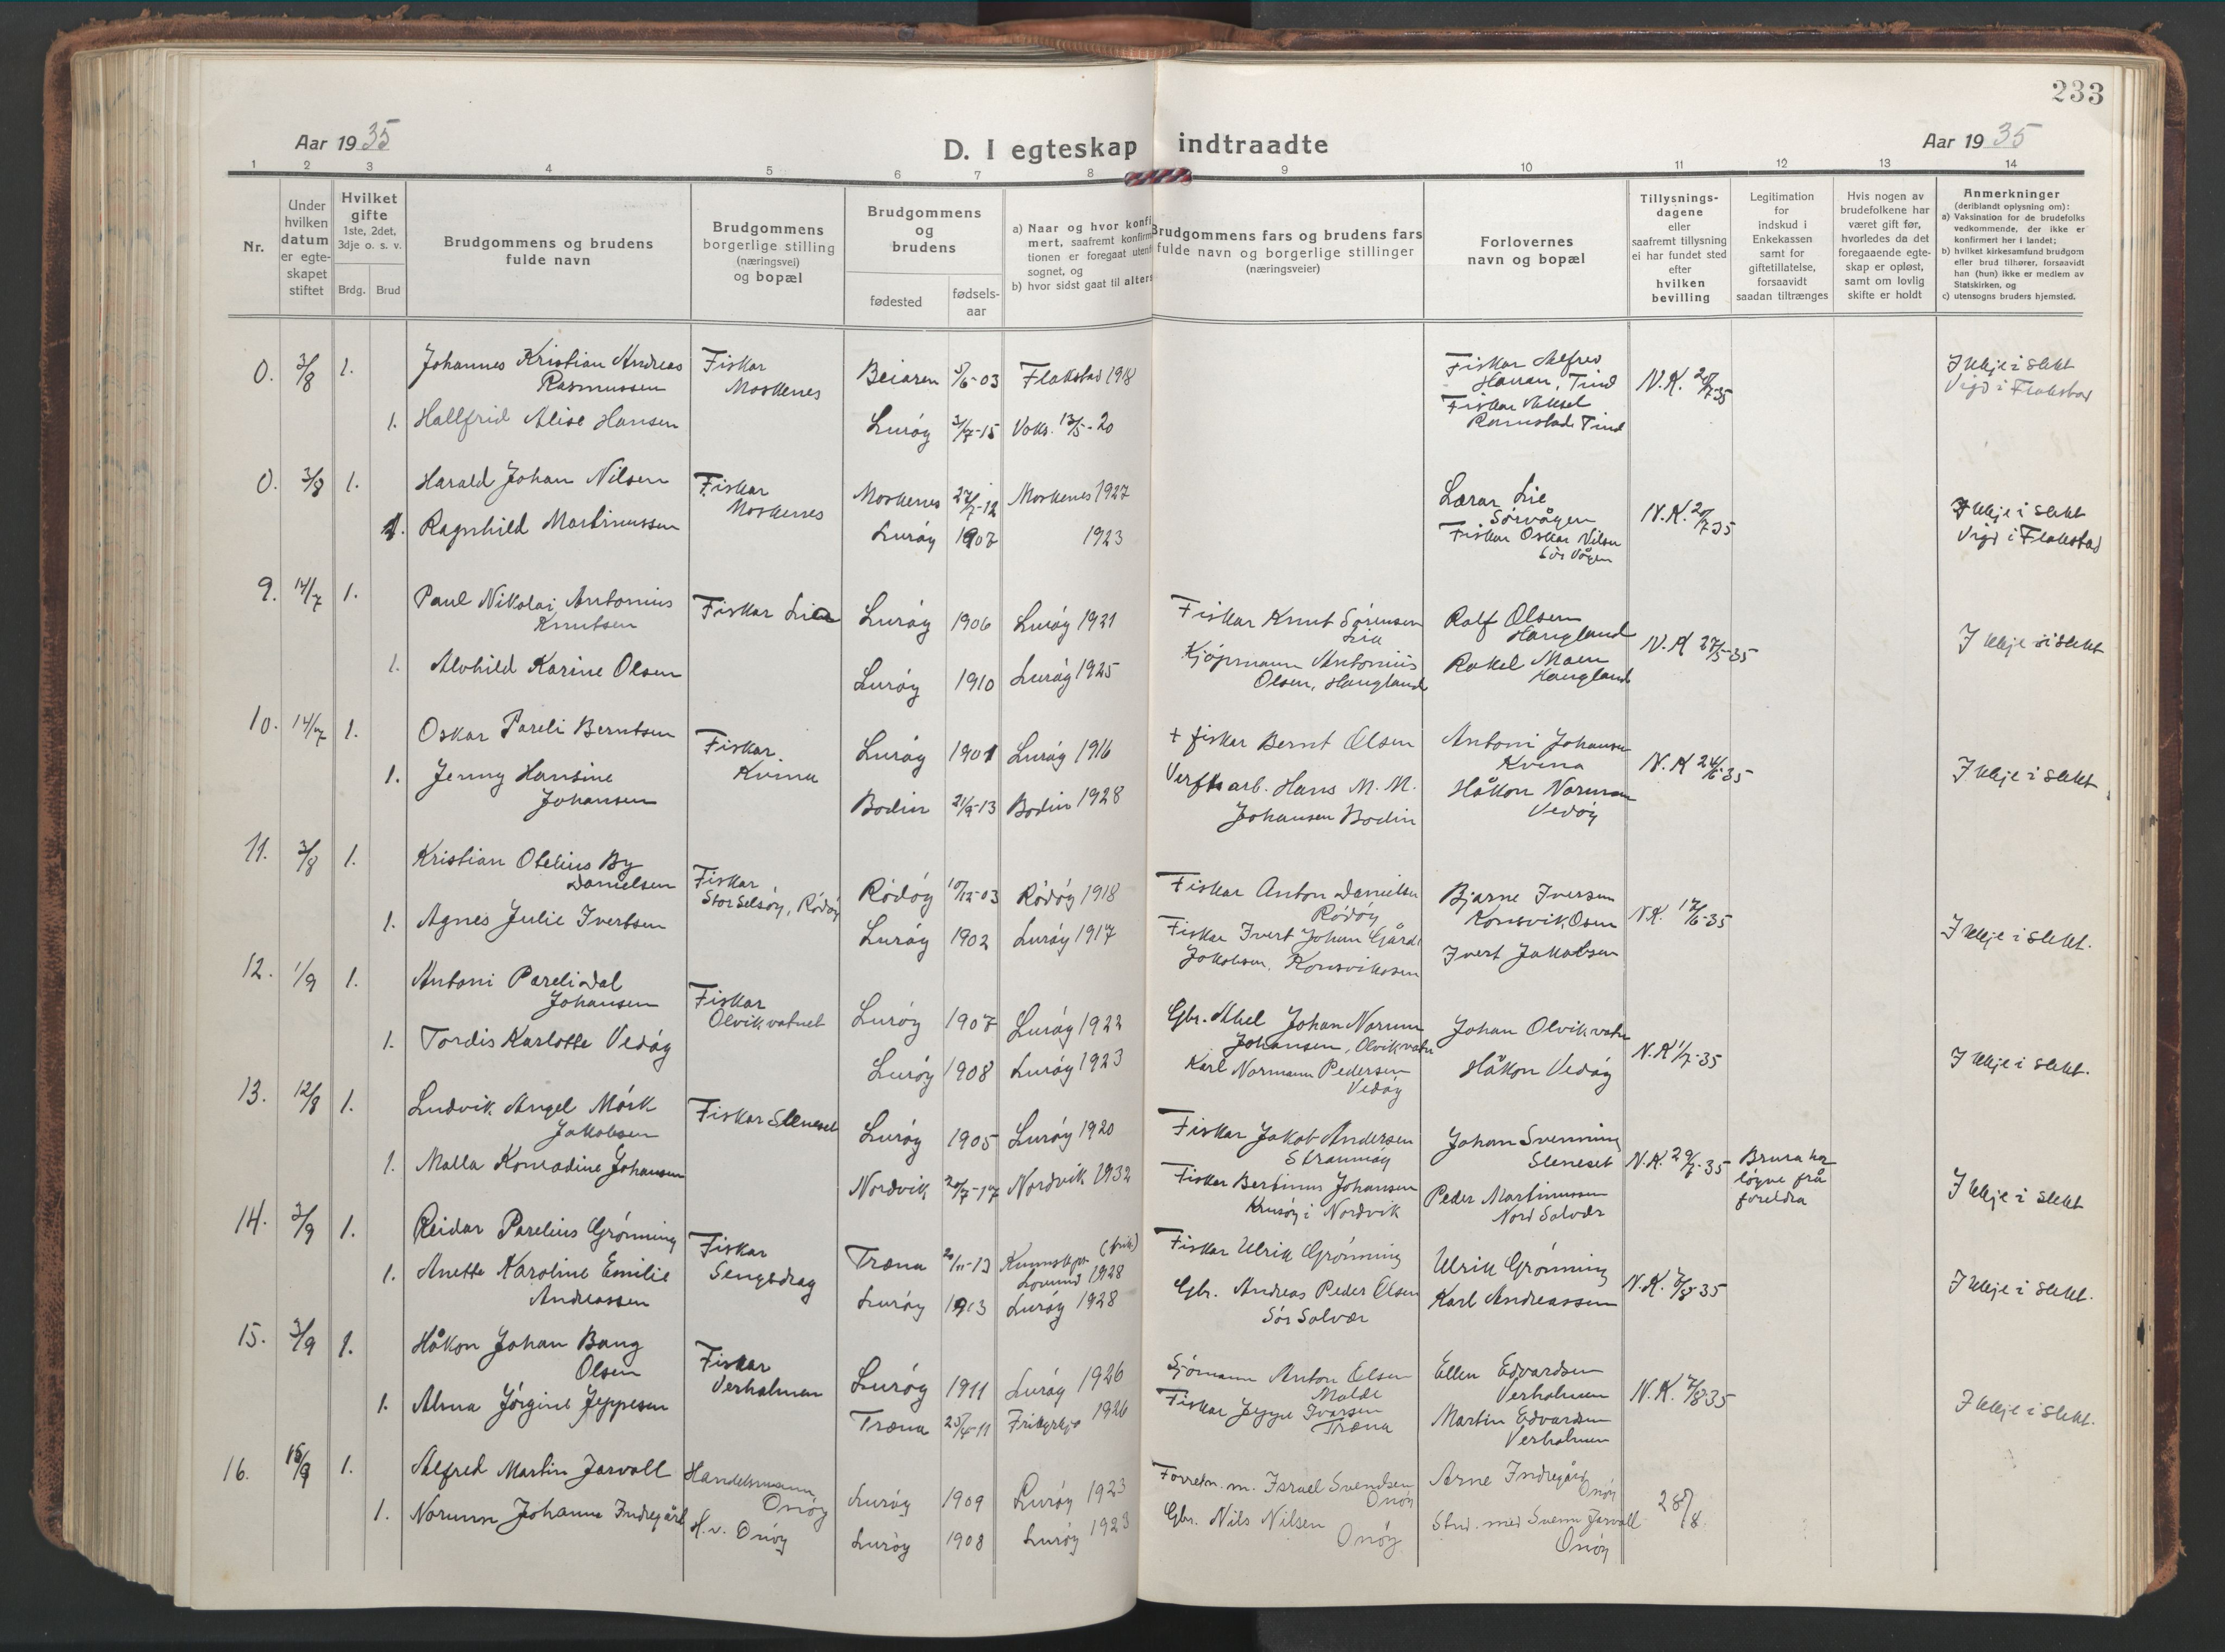 233
Aar 1935
D. I egteskap indtraadte
Aar 1935
1 2 3 4 5 6 7 8 9 10 11 12 13 14
Nr.
Under
hvilken
datum
er egte-
skapet
stiftet
Hvilket
gifte
1ste, 2det,
3dje o. s. v.
Brdg. Brud
Brudgommens og brudens
fulde navn
Brudgommens
borgerlige stilling
(næringsvei)
og bopæl
Brudgommens
og
brudens
fødested
fødsels-
aar
a) Naar og hvor konfi
mert, saafremt konfirm
tionen er foregaat utenf
sognet, og
b) hvor sidst gaat til alters
Brudgommens fars og brudens fars
fulde navn og borgerlige stillinger
(næringsveier)
Forlovernes
navn og bopæl
Tillysnings-
dagene
eller
saafremt tillysning
ei har fundet sted
efter
hvilken
bevilling
Legitimation
for
indskud i
Enkekassen
samt for
giftetillatelse,
forsaavidt
saadan tiltrænges
Hvis nogen av
brudefolkene har
været gift før,
hvorledes da det
foregaaende egte-
skap er opløst,
samt om lovlig
skifte er holdt
Anmerkninger
(deriblandt oplysning om):
a) Vaksination for de brudefolks
vedkommende, der ikke er
konfirmert her i landet;
b) hvilket kirkesamfund brudgom
eller brud tilhører, forsaavidt
han (hun) ikke er medlem av
Statskirken, og
c) utensogns bruders hjemsted.
0. 3/8 1. Johannes Kristian Andreas
Rasmussen
Fiskar
Moskenes
Beiaren 5/6-03 Flakstad 1918
Fiskar Alfred
Hanan, Tind
Fiskar Aksel
Ramstad Tind
N.K. 20/7-35
Ikkje i slekt
Vigd i Flakstad
1. Hallfrid Alise Hansen
Lurøy 3/7-15 Vaks. 13/5-20
0. 3/8 1. Harald Johan Nilsen
Fiskar
Moskenes
Moskenes 27/7-12 Moskenes 1927
Lærar Lie
Sørvågen
Fiskar Oskar Nilsen
Sørvågen
N.K. 20/7 35
Ikkje i slekt
Vigd i Flakstad
1. Ragnhild Martinussen
Lurøy 1907 1923
9. 14/7 1. Paul Nikolai Antonius
Knutsen
Fiskar Lia
Lurøy 1906 Lurøy 1921
Fiskar Knut Sørensen
Lia
Rolf Olsen
Haugland
N.K 27/5-35
Ikkje i slekt
1. Alvhild Karine Olsen
Lurøy 1910 Lurøy 1925
Kjøpmann Antonius
Olsen, Haugland
Rakel Moen
Haugland
10. 14/7 1. Oskar Pareli Berntsen
Fiskar
Kvina
Lurøy 1901 Lurøy 1916
+ fiskar Bernt Olsen
Antoni Johansen
Kvina
N.K 24/6-35
Ikkje i slekt
1. Jenny Hansine
Johansen
Bodin 21/9-13 Bodin 1928
Verftsarb. Hans M. M.
Johansen Bodin
Håkon Normann
Vedøy
11. 3/8 1. Kristian Otelius By
Danielsen
Fiskar
Storselsøy, Rødøy
Rødøy 10/12-03 Rødøy 1918
Fiskar Anton Danielsen
Rødøy
Bjarne Iversen
Konsvik Osen
N.K. 17/6-35
Ikkje i slekt.
1. Agnes Julie Ivertsen
Lurøy 1902 Lurøy 1917
Fiskar Ivert Johan Gård
Jakobsen, Konsvikosen
Ivert Jakobsen
12. 1/9 1. Antoni Pareli Dal
Johansen
Fiskar
Olvikvatnet
Lurøy 1907 Lurøy 1922
Gbr. Abel Johan Norum
Johansen, Olvikvatn
Johan Olvikvatn
N.K 1/7-35
Ikkje i slekt.
1. Tordis Karlotte Vedøy
Lurøy 1908 Lurøy 1923
Karl Normann Pedersen
Vedøy
Håkon Vedøy
13. 12/8 1. Ludvik Angel Mørk
Jakobsen
Fiskar Steneset
Lurøy 1905 Lurøy 1920
Fiskar Jakob Andersen
Straumøy
Johan Svenning
Steneset
N.K. 29/7-35
Brura har
løyve frå
foreldra
Ikkje i slekt
1. Malla Konradine Johansen
Nordvik 20/7-17 Nordvik 1932
Fiskar Bertinus Johansen
Krusøy i Nordvik
Peder Martinussen
Nord Solvær
14. 3/9 1. Reidar Parelius Grønning
Fiskar
Sengsdrag
Træna 20/11-13 (frik)
Lovund 1928
Fiskar Ulrik Grønning
Ulrik Grønning
N.K. 7/8-35
Ikkje i slekt.
1. Anette Karoline Emilie
Andreassen
Lurøy 1913 Lurøy 1928
Gbr. Andreas Peder Olsen
Sør Solvær
Karl Andreassen
15. 3/9 1. Håkon Johan Bang
Olsen
Fiskar
Verholmen
Lurøy 1911 Lurøy 1926
Sjømann Anton Olsen
Molde
Ellen Edvardsen
Verholmen
N.K. 7/8 35
Ikkje i slekt.
1. Alma Jørgine Jeppesen
Træna 25/4-11 Frikyrkje 1926
Fiskar Jeppe Ivarsen
Træna
Martin Edvardsen
Verholmen
16. 15/9 1. Alfred Martin Jarvoll
Handelsmann
Onøy
Lurøy 1909 Lurøy 1923
Forretn. m. Israel Svendsen
Onøy
Arne Indregård
Onøy
28/8
1. Norunn Johanne Indregård
H.v. Onøy
Lurøy 1908 Lurøy 1923
Gbr. Nils Nilsen
Onøy
Stud. med Svenn Jarvoll
Onøy